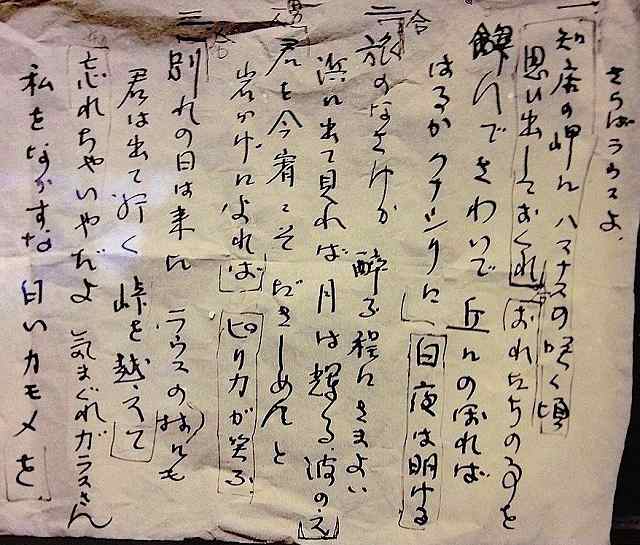 さらばラウスよ、
一 知床の岬に ハマナスの咲く頃
思い出しておくれ おれたちの事を
飲んでさわいで 丘にのぼれば
はるかクナシリに 白夜は明ける
合
二 旅のなさけか 酔う程にさまよい
浜に出て見れば 月は輝る波のえ
男
君を今宵こそ だきしめんと
岩かげによれば ピリカが笑ふ
合
三 別れの日は来た ラウスの村にも
君は出て行く 峠を越えて
忘れちゃいやだよ 気まぐれガラスさん
私をなかすな 白いカモメを